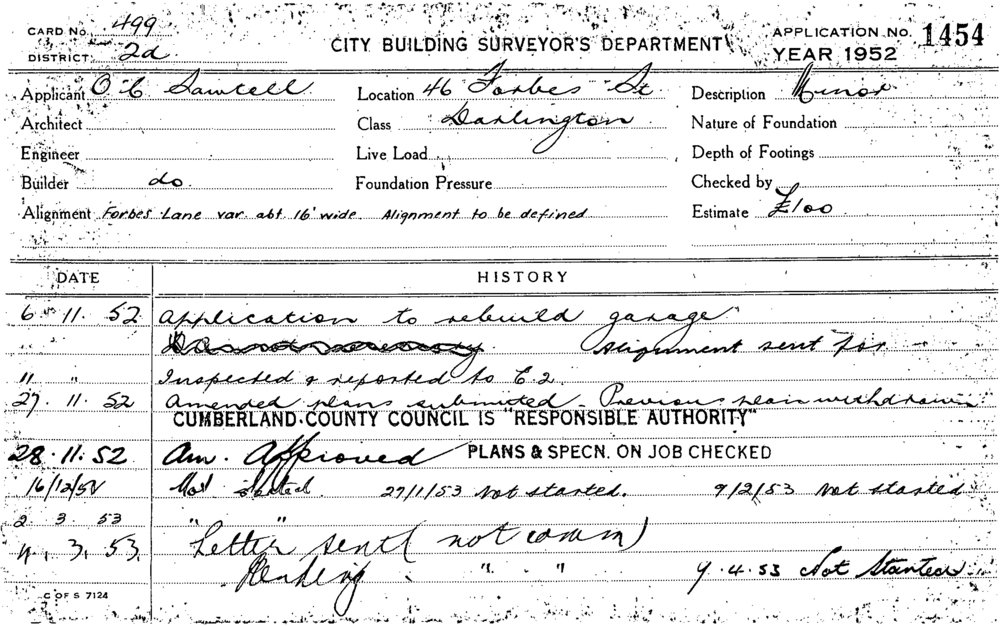 CARD No. 499
DISTRICT 2d
CITY BUILDING SURVEYOR'S DEPARTMENT
APPLICATION No. 1454
YEAR 1952
Applicant O C Sawtell Location 46 Forbes St Description Minor
Architect Class Darlington Nature of Foundation
Engineer Live Load Depth of Footings
Builder do. Foundation Pressure Checked by
Alignment Forbes Lane var. abt. 16' wide Alignment to be defined Estimate £100
DATE HISTORY
6 11. 52 Application to rebuild garage
Alignment sent for
11 " Inspected & reported to E.2.
27. 11. 52 Amended plans submitted - Previous plan withdrawn
CUMBERLAND COUNTY COUNCIL IS "RESPONSIBLE AUTHORITY"
28. 11. 52 Am. Approved PLANS & SPECN. ON JOB CHECKED
16/12/52 Not started. 27/1/53 Not started. 9/2/53 Not started
2. 3. 53 " "
4. 3. 53. Letter sent (not comm)
Pending " " 9. 4. 53 Not Started
C OF S 7124